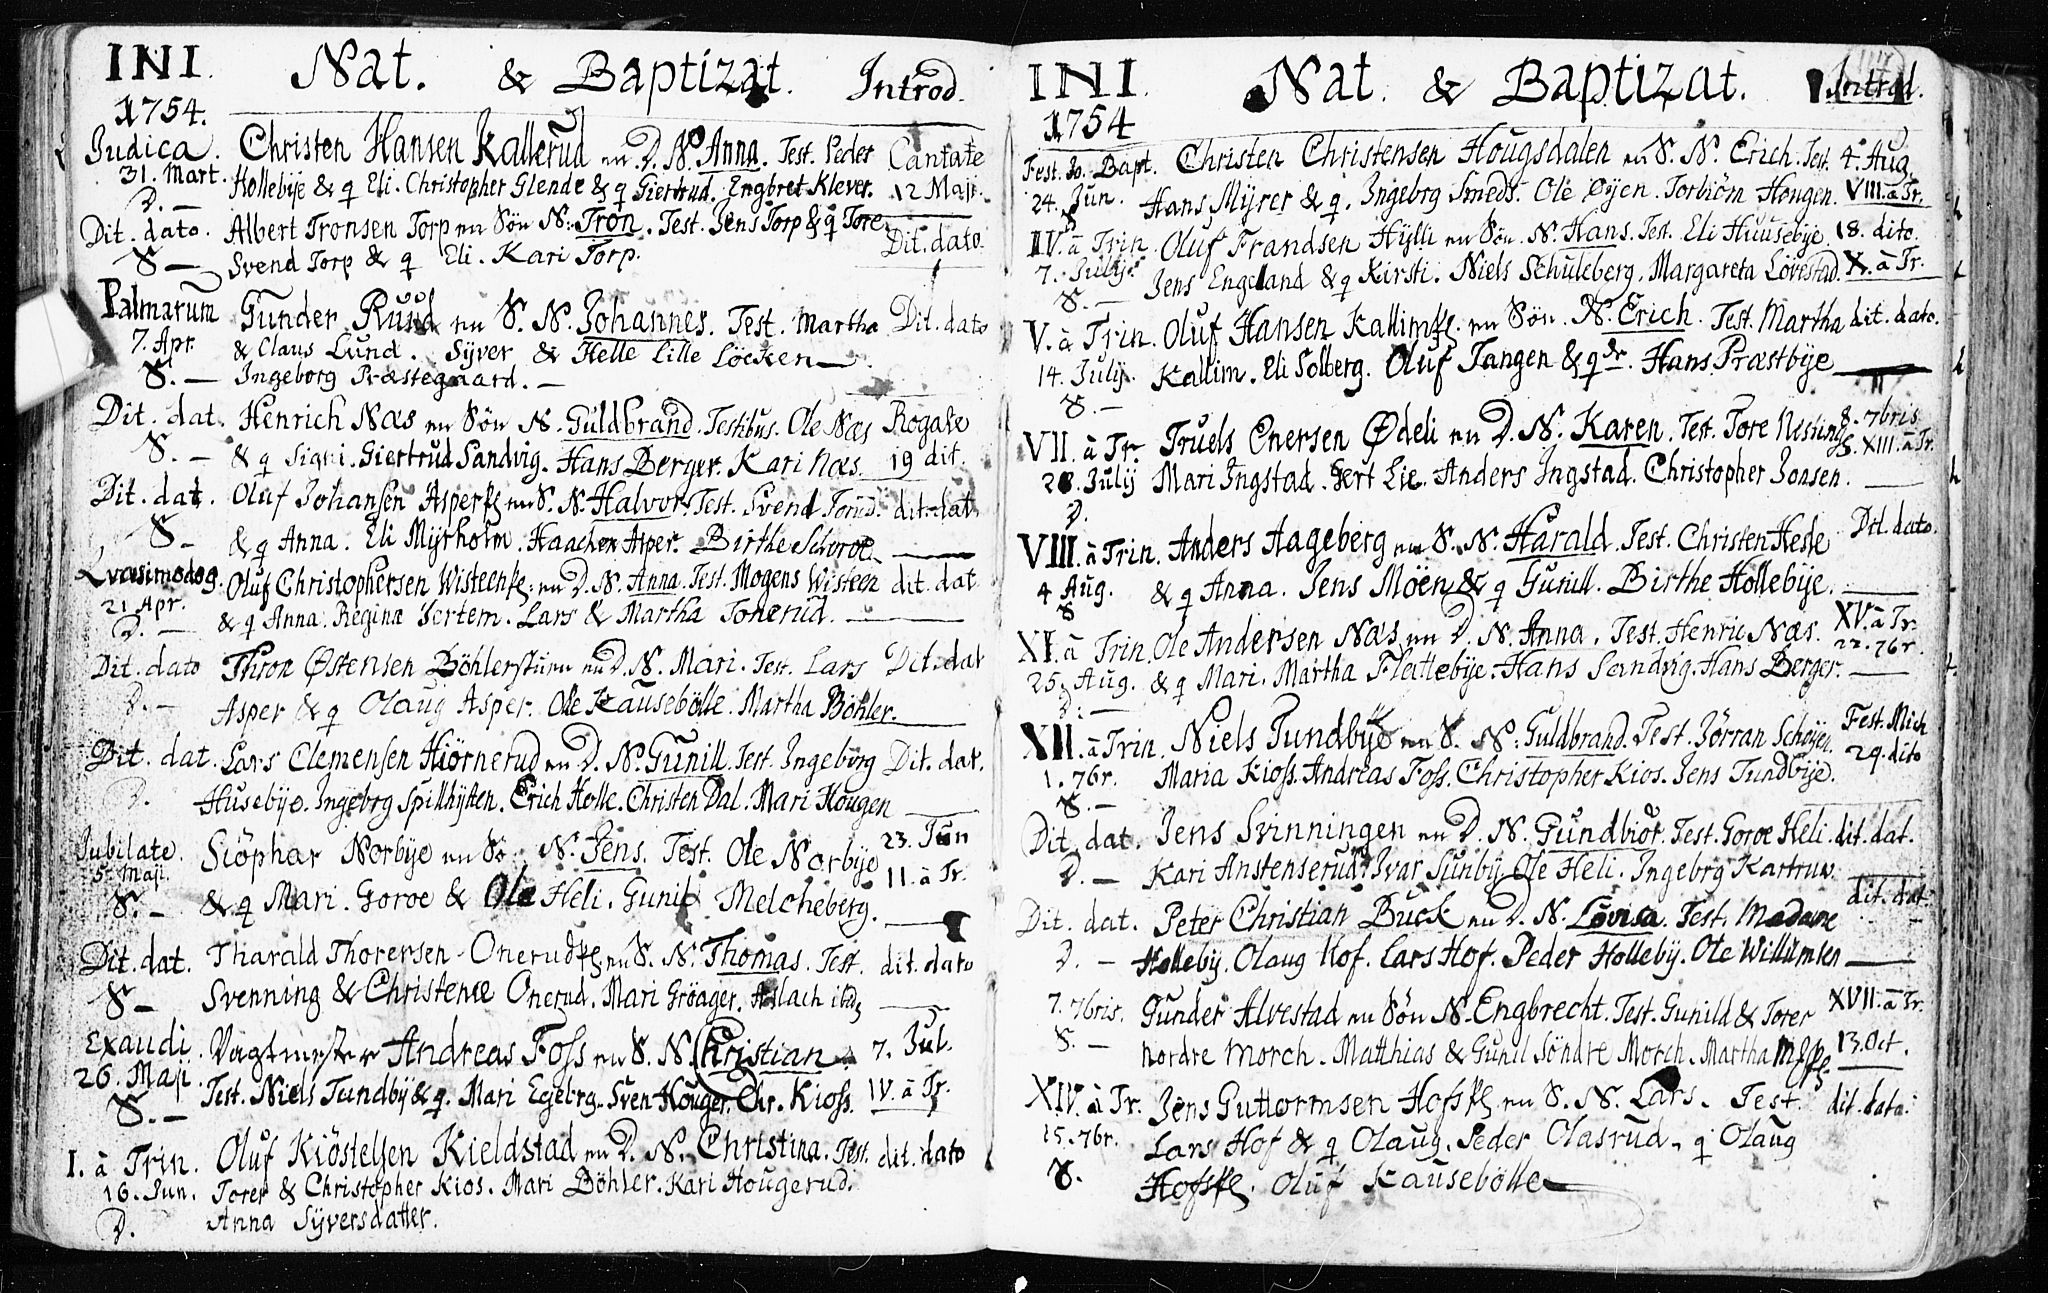 INI. Nat. & Baptizat. Introd.
1754.
Judica. Christen Hansen Kallerud en D. N. Anna. Test. Peder Cantate
31. Mart. Hollebÿe & q Eli. Christopher Glende & q Giertrud. Engbret Klever. 12 Maji.
D. —
Dit. dato. Albert Tronsen Torp en Sön N. Tron. Test. Jens Torp & q Tore Dit. dato.
S — Svend Torp & q Eli. Kari Torp.
Palmarum Gunder Ruud en S. N. Johannes. Test. Martha Dit. dato
7. Apr. & Claus Lund. Sÿver & Helle Lille Löcken —
S. — Ingeborg Præstegaard. —
Dit. dat. Henrich Næs en Sön N. Guldbrand. Testibus. Ole Næs Rogate
S. — & q Signi. Giertrud Sandvig. Hans Berger. Kari Næs. 19 dit.
Dit. dat. Oluf Johansen Asper en S. N. Halvor. Test. Svend dit. dat.
S — & q Anna. Eli Mÿrholm. Haachen Asper. Birthe
Qvasimodog. Oluf Christophersen en D. N. Anna. Test. Mogens Wisteen dit. dat
21 Apr. & q Anna. Regina Lars & Martha Tonerud.
D. —
Dit. dato Thron Østensen en D. N. Mari. Test. Lars Dit. dat
D. — Asper & q Olaug Asper. Ole Kausebölle. Martha Böhler.
Dit. dat. Lars Clemensen Hiörnerud en D. N. Gunill. Test. Ingeborg Dit. dat.
D. Husebÿe. Ingebrg Spillhÿtten. Erich Holle. Christen Dal. Mari Hougen
Jubilate. Siöphar Norbÿe en Sö: N. Jens. Test. Ole Norbÿe 23. Jun
5. Maji. II. à Tr.
S. — & q Mari. Goroe & Ole Heli. Gunil Melcheberg.
Dit. dat. Tharald Thorersen Onerud en S. N. Thomas. Test. dit. dato
S — Svenning & Christence Onerud. Mari Gröager.
Exaudi. Vagtmester Andreas Foss en S. N. Christian. 7. Jul.
26. Maji. Test. Niels Tundbÿ & q. Mari Egebrg. Sven Houger. Chr. Kioss. IV. à Tr.
S. —
I. à Trin. Oluf Kiöstelsen Kieldstad en D. N. Christina. Test. dit. dato
16. Jun. Torer & Christopher Kios. Mari Böhler. Kari Hougerud.
D. Anna Sÿversdatter.
INI. Nat. & Baptizat. Introd.
1754
Fest. Jo. Bapt. Christen Christensen Hougsdalen en S. N. Erich. Test. 4. Aug.
24. Jun. Hans Mÿrer & q. Ingebrg Smeds. Ole Øÿen. Torbiörn Hougen. VIII. à Tr.
S
IV. à Trin. Oluf Frandsen Hÿlli en Sön. N. Hans. Test. Eli Huusebÿe. 18. dito.
7. Julÿ. Jens Engeland & q Kirsti. Niels Schuleberg. Margareta Lövestad. X. à Tr.
S. —
V. à Trin. Oluf Hansen en Sön. N. Erich. Test. Martha dit. dato.
14. Julÿ. Kallim. Eli Solberg. Oluf Tangen & q Hans Præstbÿe
S. —
VII. à Tr. Truels Enersen Ødeli en D. N. Karen. Test. Tore 8. 7bris
28. Julÿ Mari Ingstad. Gert Lie. Anders Ingstad. Christopher Jonsen. XIII. à Tr.
D.
VIII. à Trin. Anders Aageberg en S. N. Harald. Test. Christen Hesle Dit. dato.
4 Aug. & q Anna. Jens Möen & q Gunill. Birthe Hollebÿe.
S
XI. à Trin. Ole Andersen Næs en D. N. Anna. Test. Henric Næs. XV. à Tr.
25. Aug. & q Mari. Martha Flattebÿe. Hans Sandvig. Hans Berger. 22. 7br.
D. —
XII. à Trin. Niels Tundbÿe en S. N. Guldbrand. Test. Jörran Schöÿen. Fest. Mich
1. 7br. Maria Kioss. Andreas Foss. Christopher Kios. Jens Tundbÿe. 29. dito
S. —
Dit. dat. Jens Svinningen en D. N. Gundbiör. Test. Goroe Heli. dit. dat.
D. — Kari Anstenserud. Ivar Sunbÿ. Ole Heli. Ingebrg
Dit. dat. Peter Christian Buck en D. N. Lovisa. Test. Madame dit. dat.
D. — Hollebÿ. Olaug Hof. Lars Hof. Peder Hollebÿ. Ole Willumsen
7. 7bris. Gunder Alvestad en Sön N. Engbrecht. Test. Gunild & Torer XVII. à Tr.
S. — Nordre Morch. Matthias & Gunil Söndre Morch. Martha 13. Oct.
XIV. à Tr. Jens Guttormsen en S. N. Lars. Test. dit. dato.
15. 7br. Lars Hof & q Olaug. Peder Olasrud. q Olaug
S. Oluf Kausebölle